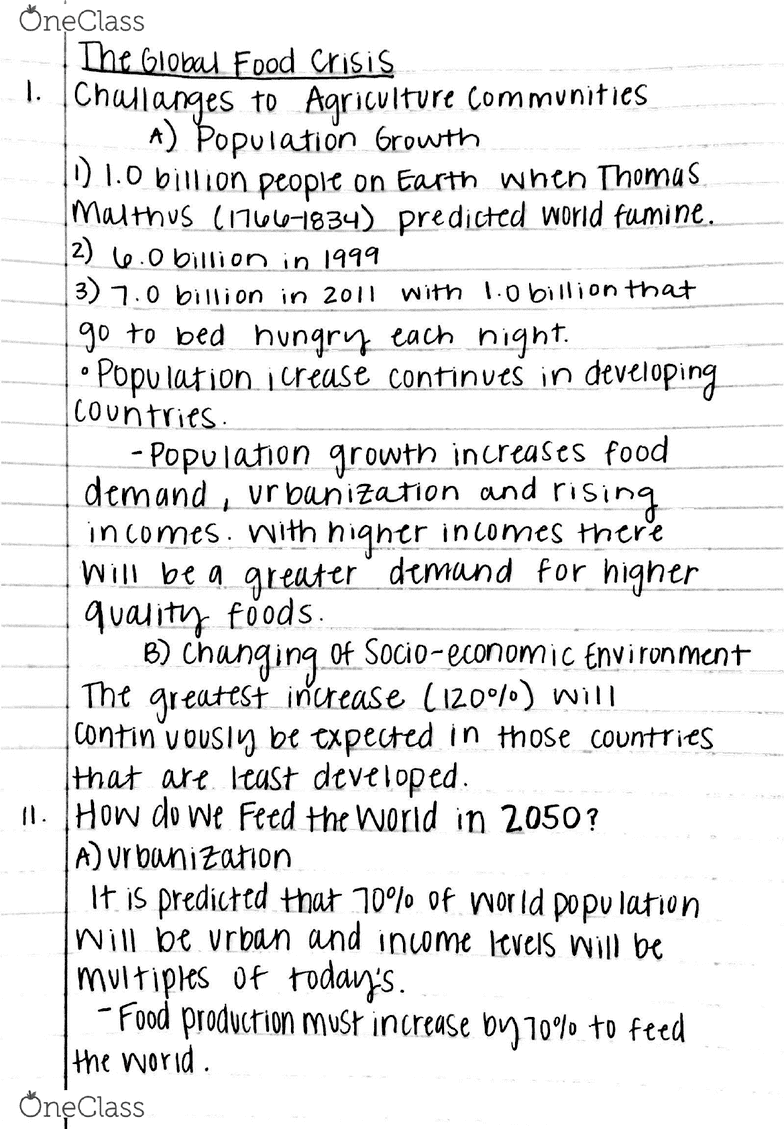 OneClass
The Global Food Crisis
I. Challanges to Agriculture Communities
A) Population Growth
1) 1.0 billion people on Earth when Thomas
Malthus (1766-1834) predicted world famine.
2) 6.0 billion in 1999
3) 7.0 billion in 2011 with 1.0 billion that
go to bed hungry each night.
• Population icrease continues in developing
countries.
- Population growth increases food
demand, urbanization and rising
incomes. With higher incomes there
will be a greater demand for higher
quality foods.
B) Changing of Socio-economic Environment
The greatest increase (120%) will
continuously be expected in those countries
that are least developed.
II. How do we Feed the World in 2050?
A) Urbanization
It is predicted that 70% of world population
will be urban and income levels will be
multiples of today's.
- Food production must increase by 70% to feed
the world.
OneClass